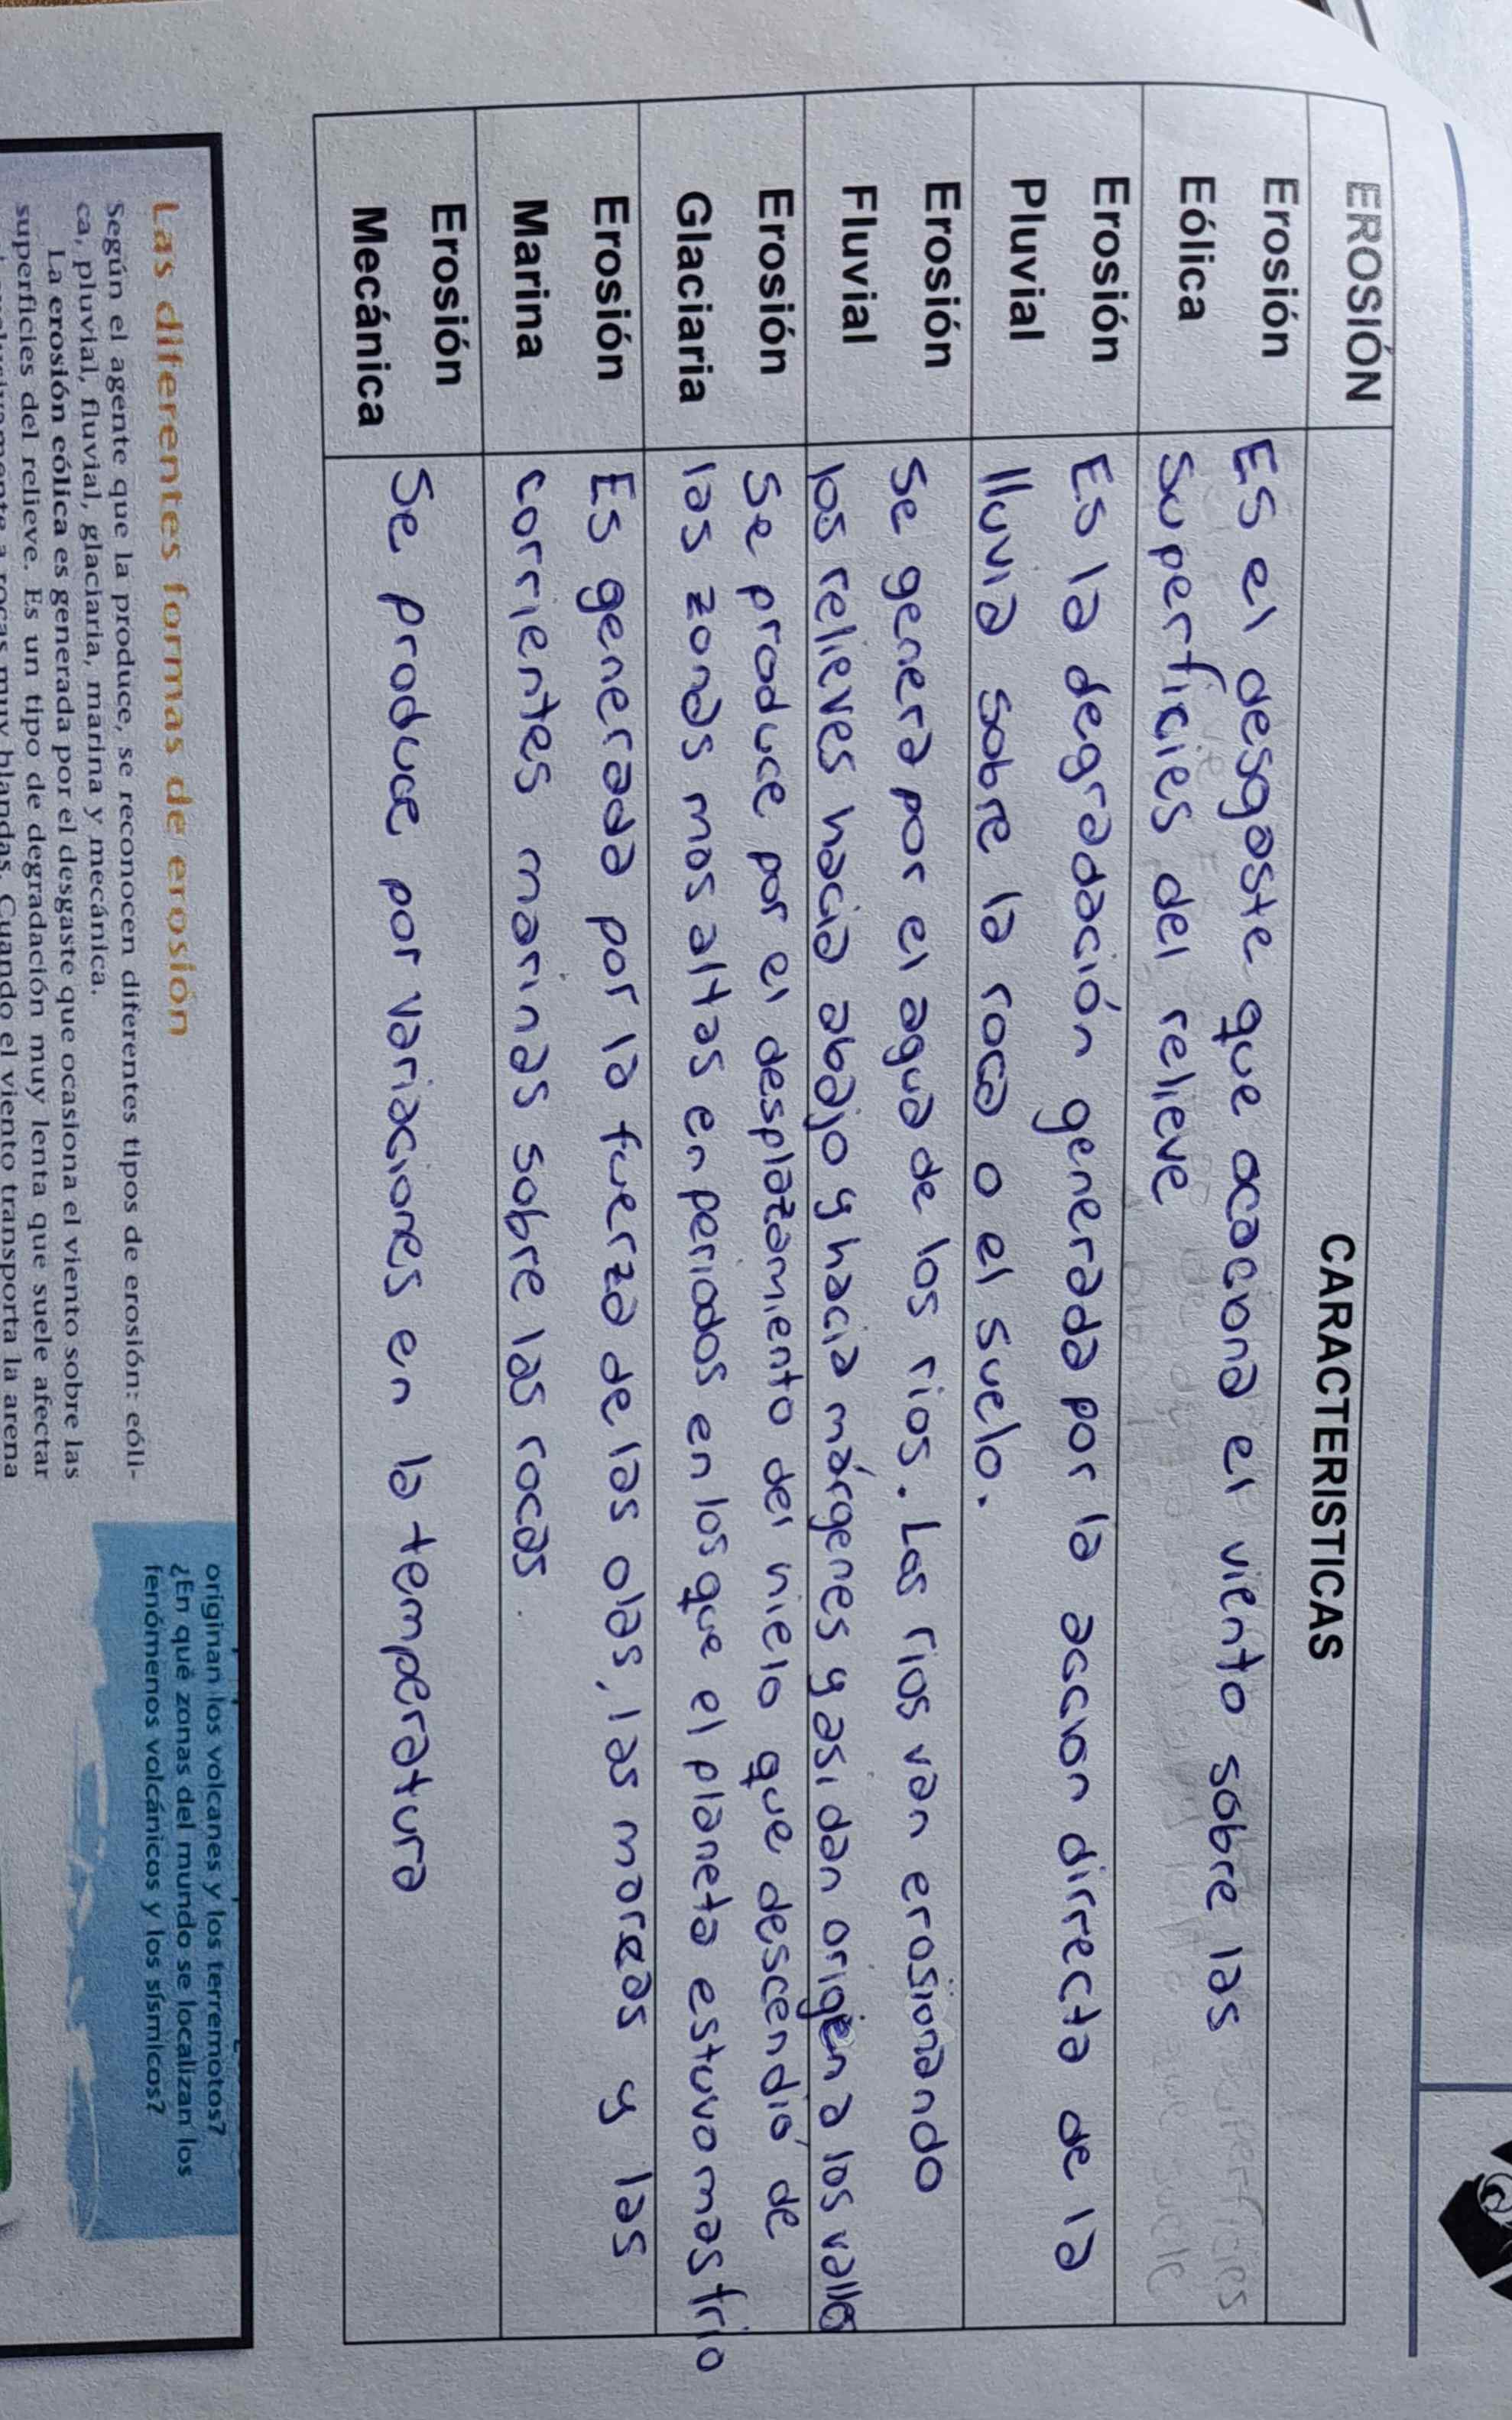 EROSIÓN
CARACTERISTICAS
Erosión
Eólica
Es el desgaste que ocaciona el viento sobre las
superficies del relieve
Erosión
Pluvial
Es la degradación generada por la accion dirrecta de la
lluvia sobre la roca o el suelo.
Erosión
Fluvial
Se genera por el agua de los rios. Los rios van erosionando
los relieves hacia abajo y hacia márgenes y asi dan origen a los valles
Erosión
Glaciaria
Se produce por el desplazamiento del hielo que descendió de
las zonas mas altas en periodos en los que el planeta estuvo mas frio
Erosión
Marina
Es generada por la fuerza de las olas, las mareas y las
corrientes marinas sobre las rocas
Erosión
Mecánica
Se produce por variaciones en la temperatura
originan los volcanes y los terremotos?
¿En qué zonas del mundo se localizan los
fenómenos volcánicos y los sísmicos?
Las diferentes formas de erosión
Según el agente que la produce, se reconocen diferentes tipos de erosión: eóli-
ca, pluvial, fluvial, glaciaria, marina y mecánica.
La erosión eólica es generada por el desgaste que ocasiona el viento sobre las
superficies del relieve. Es un tipo de degradación muy lenta que suele afectar
a rocas muy blandas. Cuando el viento transporta la arena